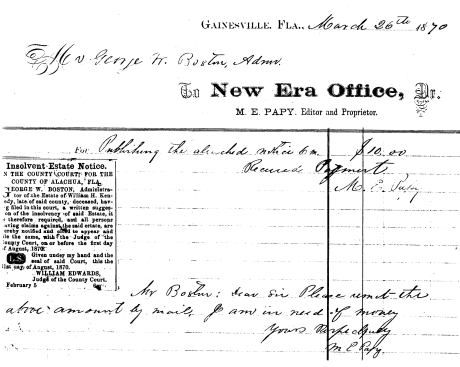 GAINESVILLE, FLA., March 26th 1870
Mr George W. Boston, Admr.
To New Era Office, Dr.
M. E. PAPY, Editor and Proprietor.
For Publishing the attached notice 6 m. $10.00
Received Payment
M. E. Papy
Insolvent Estate Notice.
N THE COUNTY COURT: FOR THE
COUNTY OF ALACHUA, FLA.
EORGE W. BOSTON, Administra-
tor of the Estate of William H. Ken-
edy, late of said county, deceased, hav-
g filed in this court, a written sugges-
on of the insolvency of said Estate, it
therefore required, and all persons
aving claims against the said estate, are
ereby notified and cited to appear and
ile the same, with the Judge of the
ounty Court, on or before the first day
f August, 1870.
L.S. Given under my hand and the
seal of said Court, this the
1st day of August, 1870.
WILLIAM EDWARDS,
Judge of the County Court.
February 5 6m
Mr Boston: Dear Sir Please remit the
above amount by mail, I am in need of money
Yours Respectfully
M E Papy.